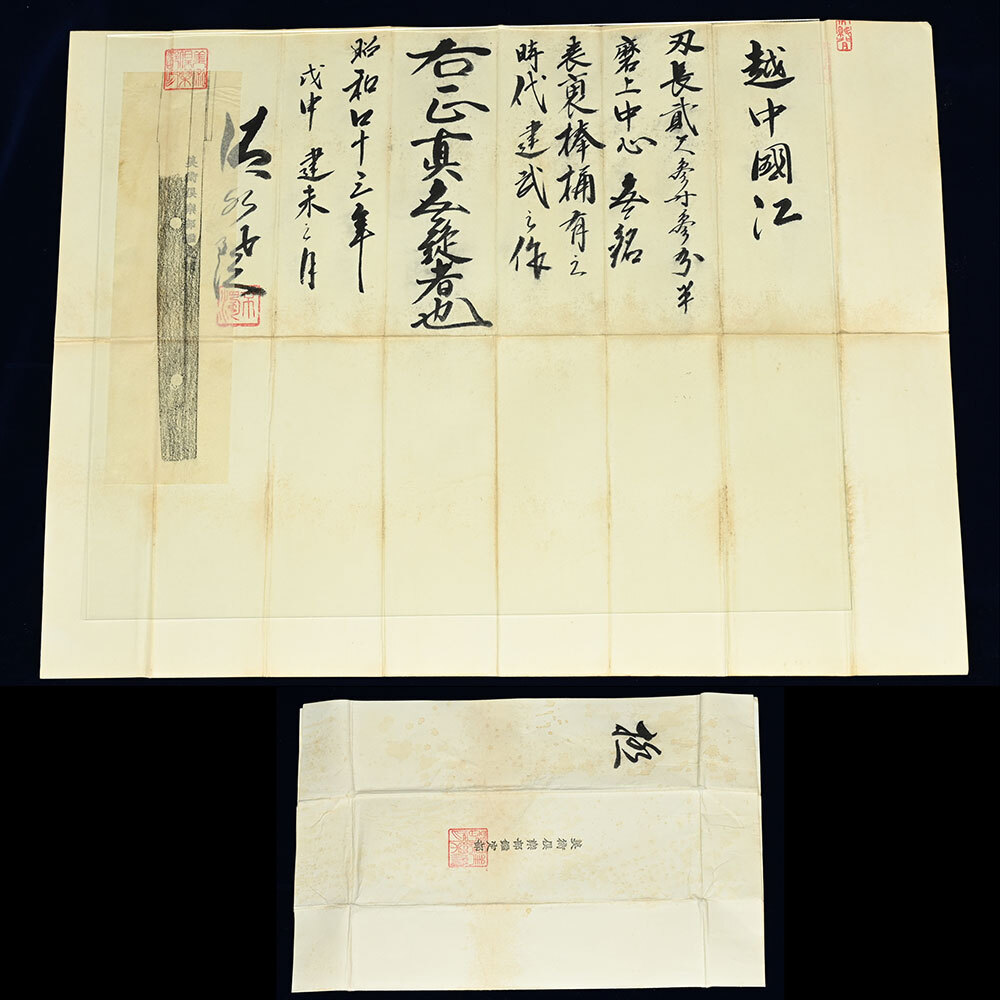 越中國江
刃長貳尺参寸参分半
磨上中心無銘
表裏棒樋有之
時代建武之作
右正真無疑者也
昭和四十三年
戊申 建未之月
美術倶楽部鑑定部